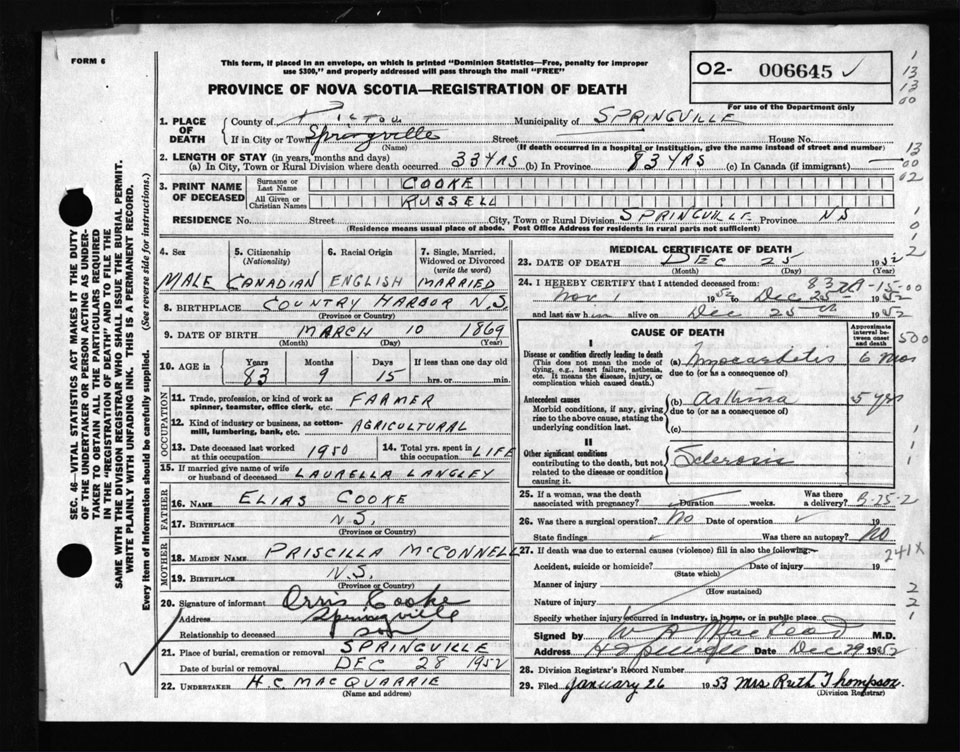 FORM 6
This form, if placed in an envelope, on which is printed "Dominion Statistics—Free, penalty for improper
use $300," and properly addressed will pass through the mail "FREE"
O2- 006645 ✓
For use of the Department only
PROVINCE OF NOVA SCOTIA—REGISTRATION OF DEATH
1. PLACE OF DEATH
County of Pictou Municipality of SPRINGVILLE
If in City or Town Springville Street House No.
(Name) (If death occurred in a hospital or institution, give the name instead of street and number)
2. LENGTH OF STAY (in years, months and days)
(a) In City, Town or Rural Division where death occurred 33 YRS (b) In Province 83 YRS (c) In Canada (if immigrant)
3. PRINT NAME OF DECEASED
Surname or Last Name COOKE
All Given or Christian Names RUSSELL
RESIDENCE No. Street City, Town or Rural Division SPRINGVILLE Province NS
(Residence means usual place of abode. Post Office Address for residents in rural parts not sufficient)
4. Sex MALE
5. Citizenship (Nationality) CANADIAN
6. Racial Origin ENGLISH
7. Single, Married, Widowed or Divorced (write the word) MARRIED
8. BIRTHPLACE COUNTRY HARBOR N.S.
(Province or Country)
9. DATE OF BIRTH MARCH 10 1869
(Month) (Day) (Year)
10. AGE in Years 83 Months 9 Days 15 If less than one day old hrs. or min.
OCCUPATION
11. Trade, profession, or kind of work as spinner, teamster, office clerk, etc. FARMER
12. Kind of industry or business, as cotton-mill, lumbering, bank, etc. AGRICULTURAL
13. Date deceased last worked at this occupation 1950
14. Total yrs. spent in this occupation LIFE
15. If married give name of wife or husband of deceased LAURELLA LANGLEY
FATHER
16. NAME ELIAS COOKE
17. BIRTHPLACE N.S.
(Province or Country)
MOTHER
18. MAIDEN NAME PRISCILLA McCONNELL
19. BIRTHPLACE N.S.
(Province or Country)
20. Signature of informant Orris Cooke
Address Springville
Relationship to deceased son
21. Place of burial, cremation or removal SPRINGVILLE
Date of burial or removal DEC 28 1952
22. UNDERTAKER H.C. MACQUARRIE
(Name and address)
MEDICAL CERTIFICATE OF DEATH
23. DATE OF DEATH DEC 25 1952
(Month) (Day) (Year)
24. I HEREBY CERTIFY that I attended deceased from:
Nov 1 1952 to Dec 25 1952
and last saw him alive on Dec 25 1952
CAUSE OF DEATH
Approximate interval between onset and death
I
Disease or condition directly leading to death
(This does not mean the mode of dying, e.g., heart failure, asthenia, etc. It means the disease, injury, or complication which caused death.)
(a) Myocarditis 6 mos
due to (or as a consequence of)
Antecedent causes
Morbid conditions, if any, giving rise to the above cause, stating the underlying condition last.
(b) Asthma 5 yrs
due to (or as a consequence of)
(c)
II
Other significant conditions
contributing to the death, but not related to the disease or condition causing it.
Sclerosis
25. If a woman, was the death associated with pregnancy? Duration weeks. Was there a delivery?
26. Was there a surgical operation? No Date of operation 19
State findings Was there an autopsy? No
27. If death was due to external causes (violence) fill in also the following:—
Accident, suicide or homicide? Date of injury 19
(State which)
Manner of injury
(How sustained)
Nature of injury
Specify whether injury occurred in industry, in home, or in public place
Signed by W A MacLeod M.D.
Address Date Dec 29 1952
28. Division Registrar's Record Number
29. Filed January 26 1953 Mrs Ruth Thompson.
(Division Registrar)
SEC. 46—VITAL STATISTICS ACT MAKES IT THE DUTY
OF THE UNDERTAKER OR PERSON ACTING AS UNDER-
TAKER TO OBTAIN ALL THE PARTICULARS REQUIRED
IN THE "REGISTRATION OF DEATH" AND TO FILE THE
SAME WITH THE DIVISION REGISTRAR WHO SHALL ISSUE THE BURIAL PERMIT.
WRITE PLAINLY WITH UNFADING INK. THIS IS A PERMANENT RECORD.
Every item of Information should be carefully supplied. (See reverse side for instructions.)
1
13
13
00
13
00
02
1
0
1
2
83
15-00
500
1
1
1
B-25-2
241X
2
2
1